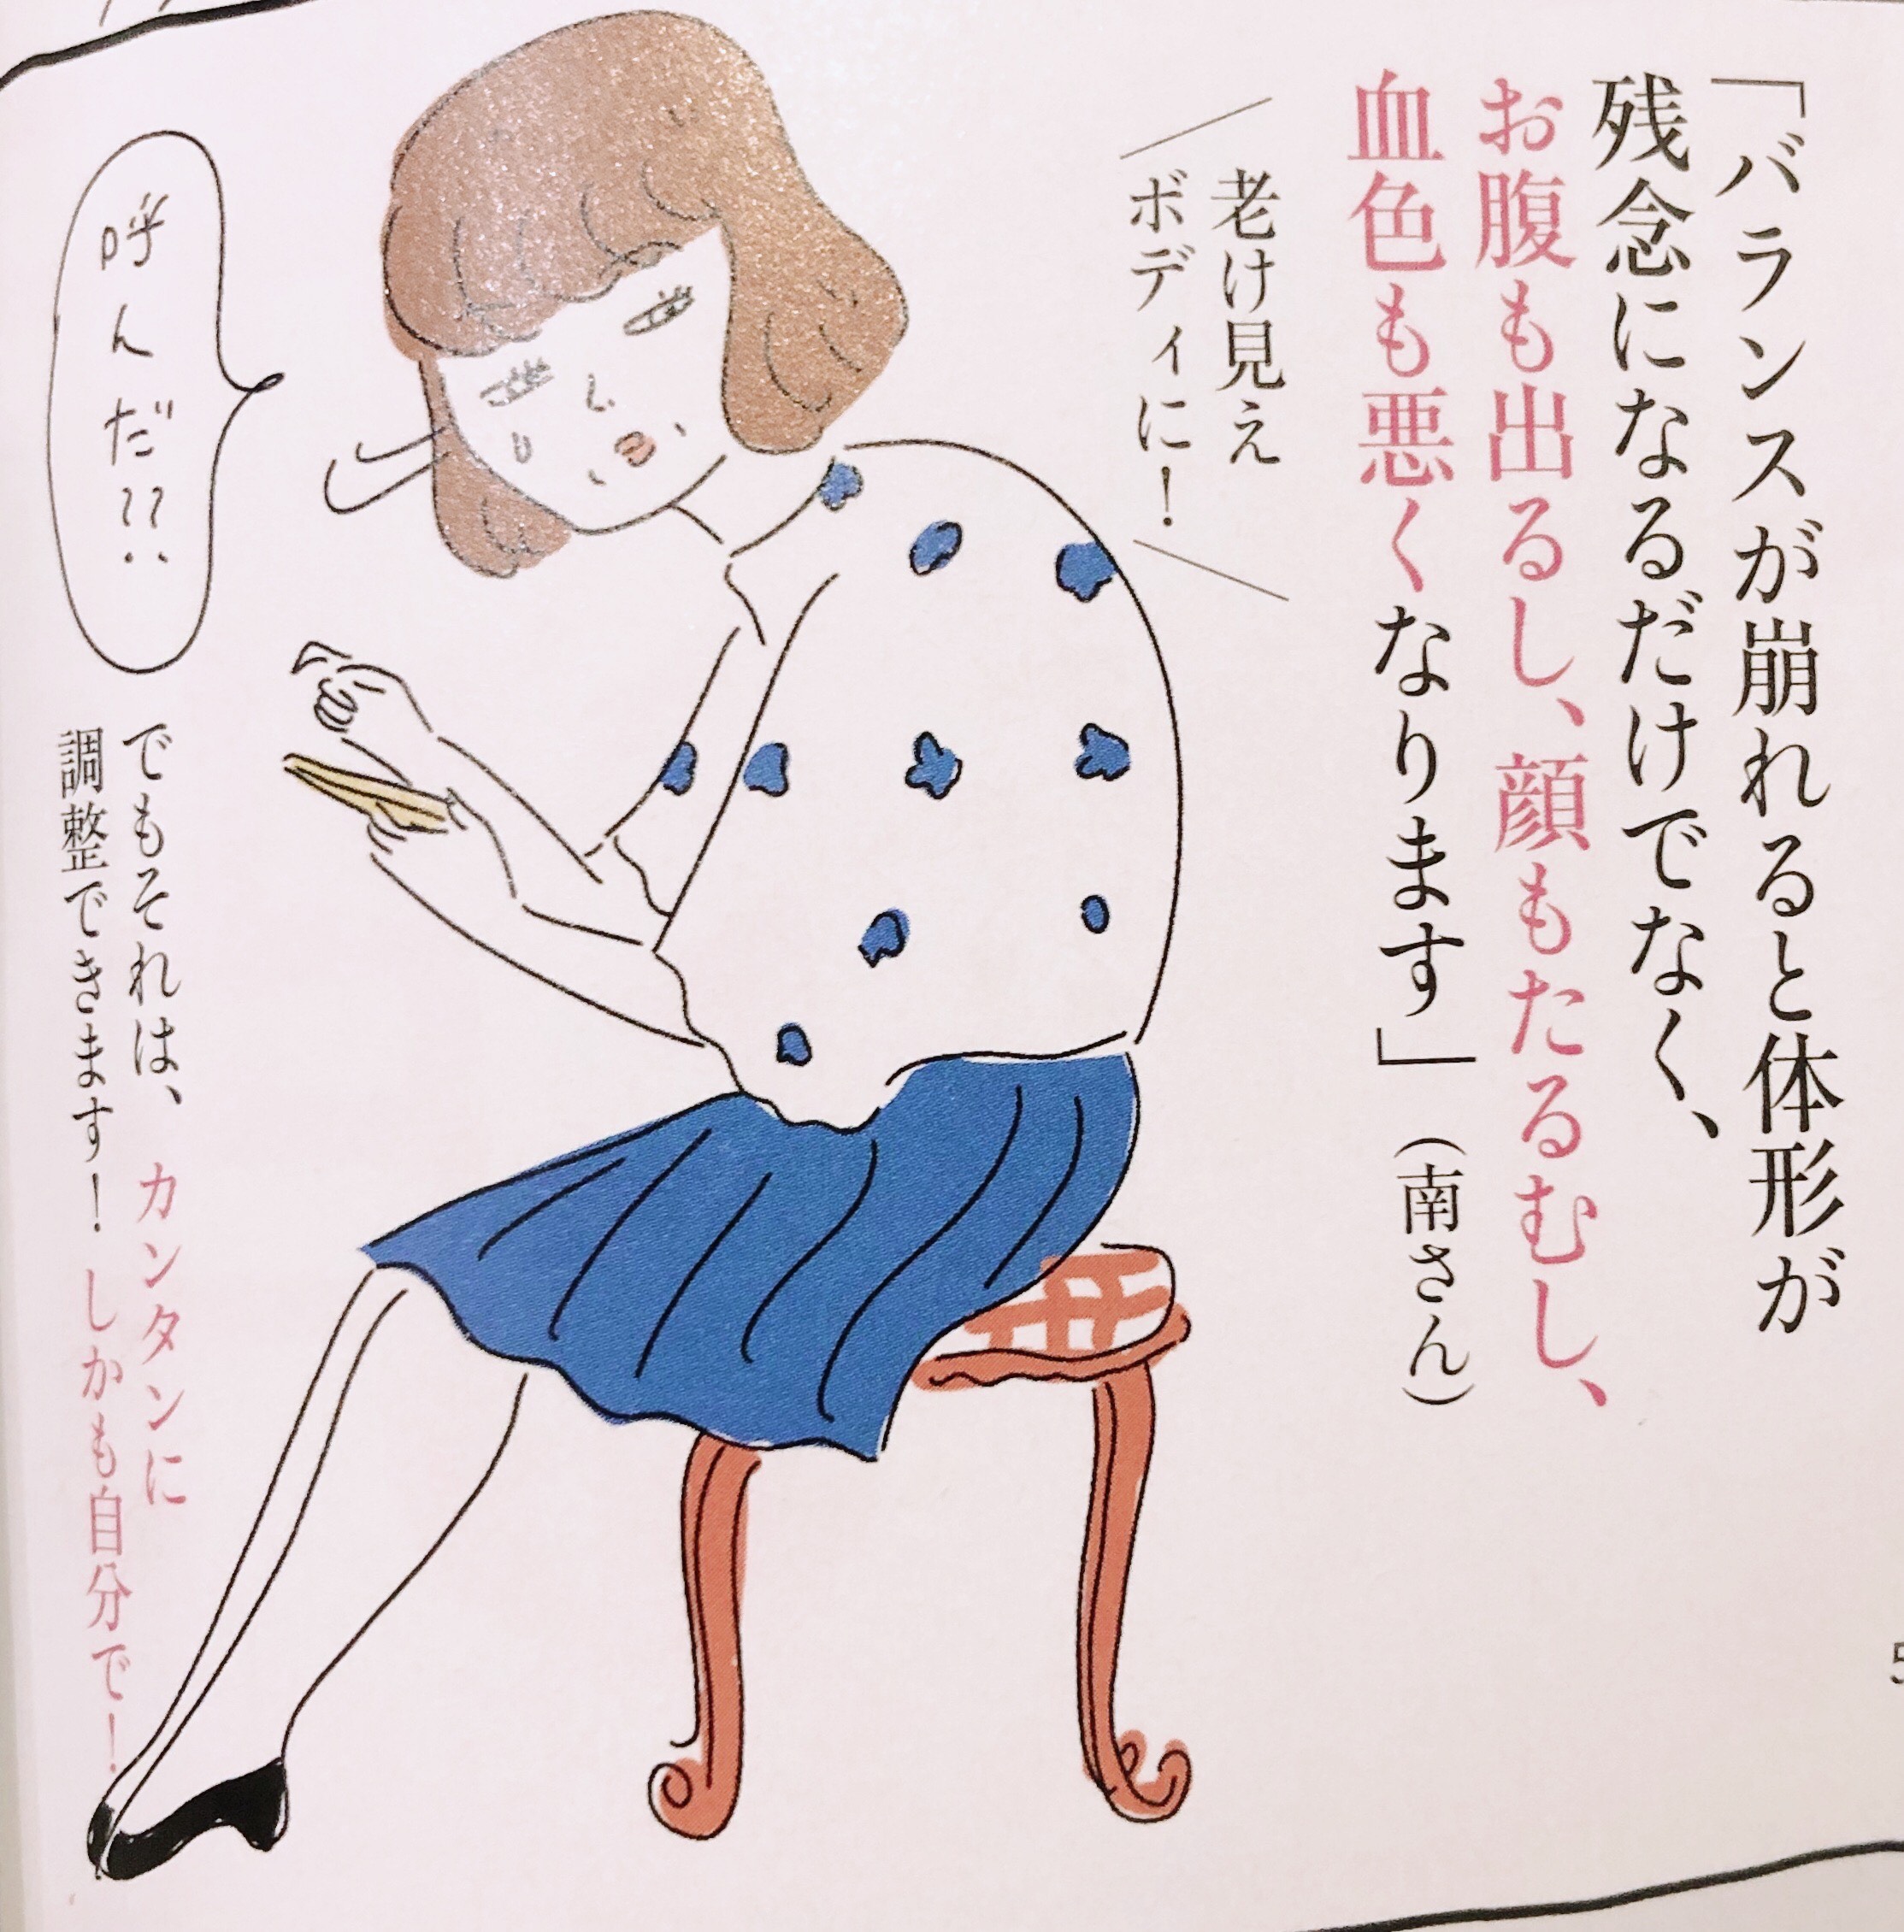 「バランスが崩れると体形が
残念になるだけでなく、
お腹も出るし、顔もたるむし、
血色も悪くなります」（南さん）
老け見え
ボディに！
呼んだ??
でもそれは、カンタンに
調整できます！しかも自分で！